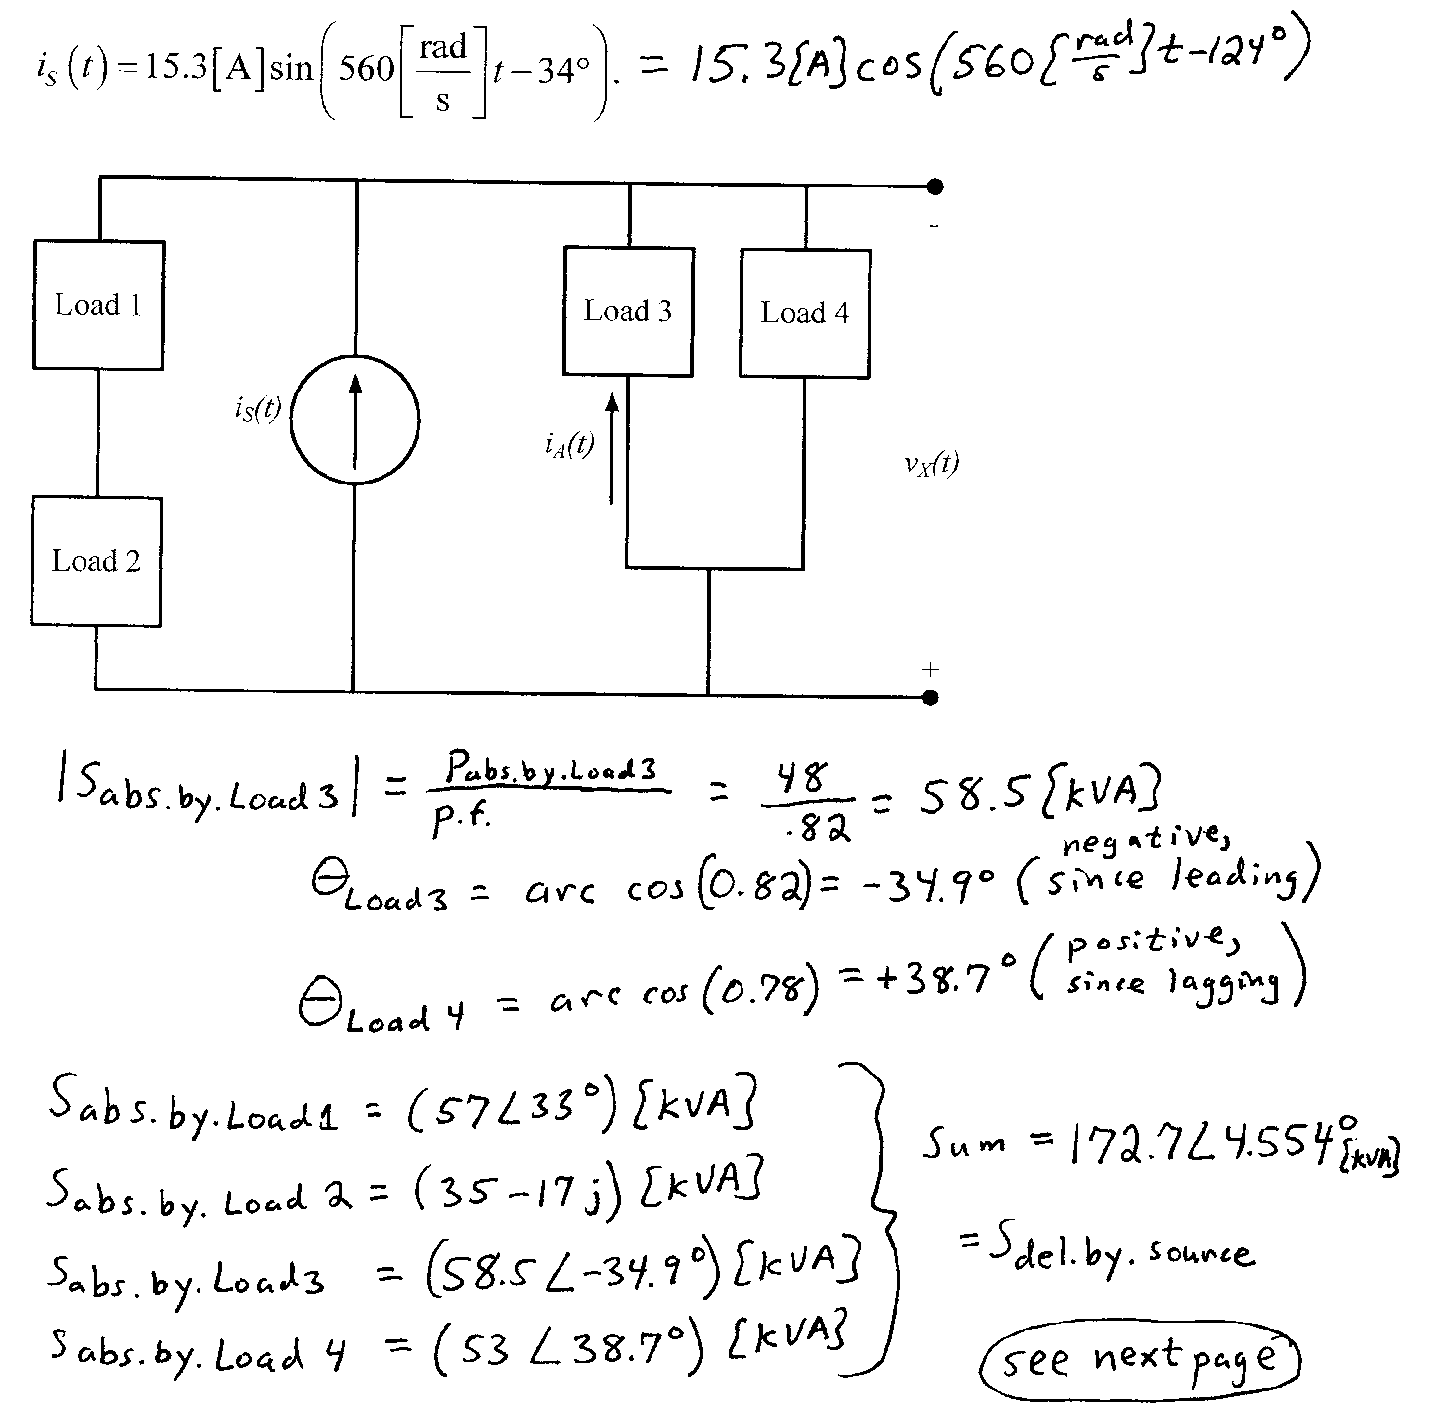 i_s(t) = 15.3[A] sin(560[rad/s]t − 34°). = 15.3[A] cos(560[rad/s]t − 124°)
-
Load 1
Load 3
Load 4
i_S(t)
i_A(t)
v_X(t)
Load 2
+
|S abs.by.Load 3| = P abs.by.Load 3 / p.f. = 48 / .82 = 58.5 [kVA]
θ Load 3 = arc cos(0.82) = -34.9° (negative, since leading)
θ Load 4 = arc cos(0.78) = +38.7° (positive, since lagging)
S abs.by.Load 1 = (57∠33°) [kVA]
S abs.by.Load 2 = (35-17j) [kVA]
S abs.by.Load 3 = (58.5∠-34.9°) [kVA]
S abs.by.Load 4 = (53∠38.7°) [kVA]
Sum = 172.7∠4.554° [kVA]
= S del.by.source
see next page